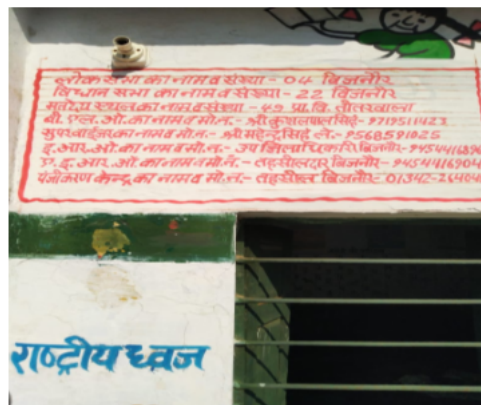 लोक सभा का नाम व संख्या - 04 बिजनौर
विधान सभा का नाम व संख्या - 22 बिजनौर
मतदेय स्थल का नाम व संख्या - 49 प्रा. वि. तीतरवाला
बी. एल. ओ. का नाम व मो. न. - श्री कुशलपाल सिंह - 9719511423
सुपरवाईजर का नाम व मो. न. - श्री महेन्द्र सिंह ले. - 9568591025
इ. आर. ओ. का नाम व मो. न. - उप जिलाधिकारि बिजनौर - 945441689
ए. इ. आर. ओ. का नाम व मो. नं. - तहसीलदार बिजनौर - 9454416904
पंजीकरण केन्द्र का नाम व मो. नं. - तहसील बिजनौर - 01342-26404
राष्ट्रीय ध्वज